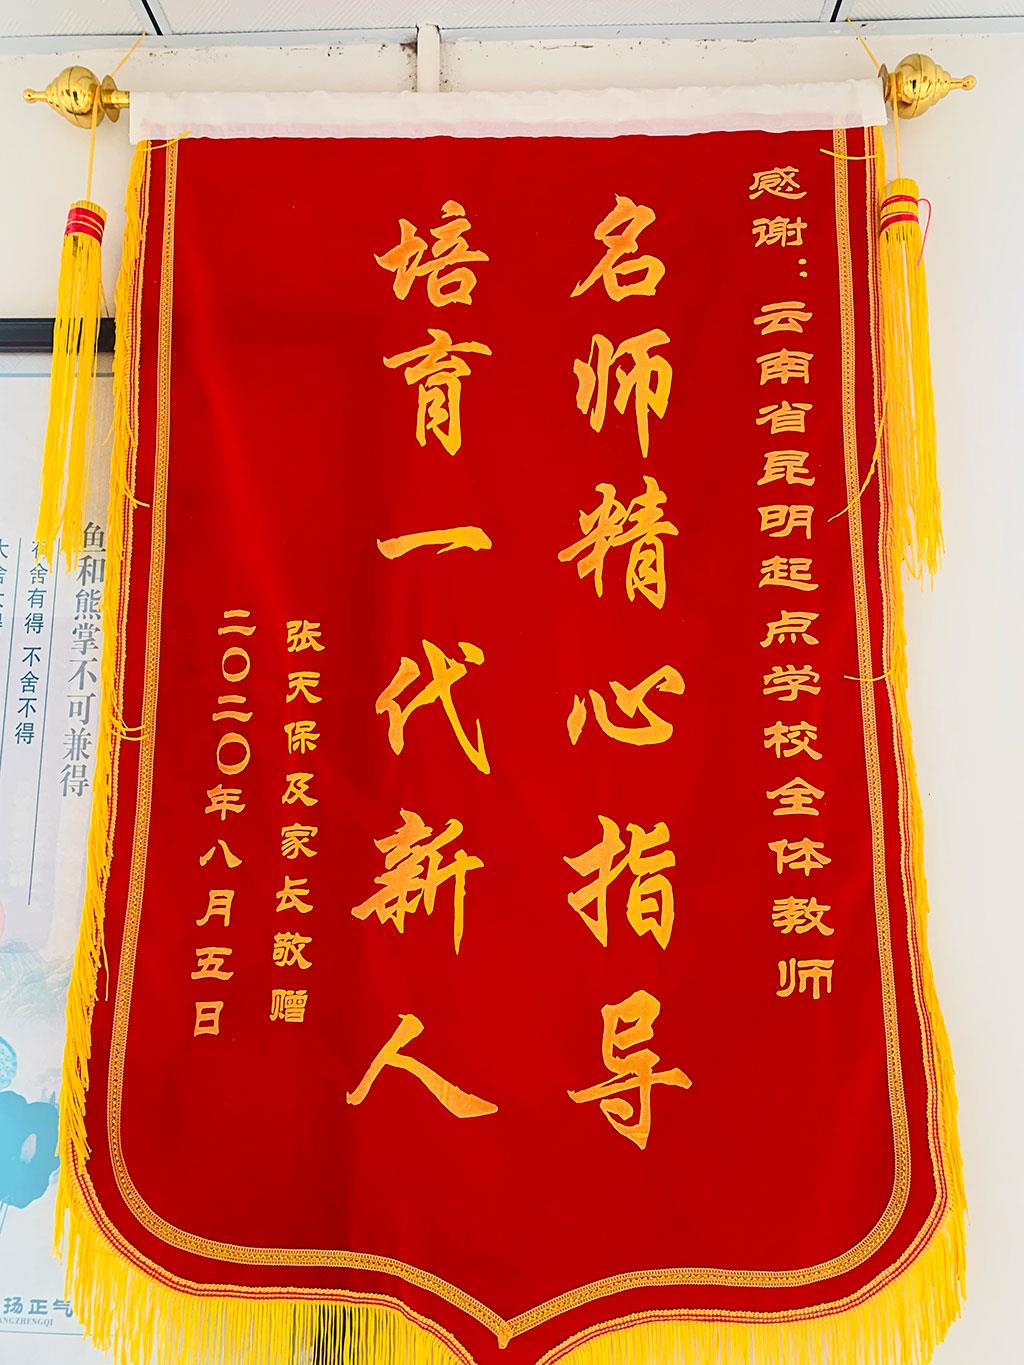 感谢：云南省昆明起点学校全体教师
名师精心指导
培育一代新人
张天保及家长敬赠
二〇二〇年八月五日
鱼和熊掌不可兼得
有舍有得 不舍不得
扬正气
ANGZHENGQI